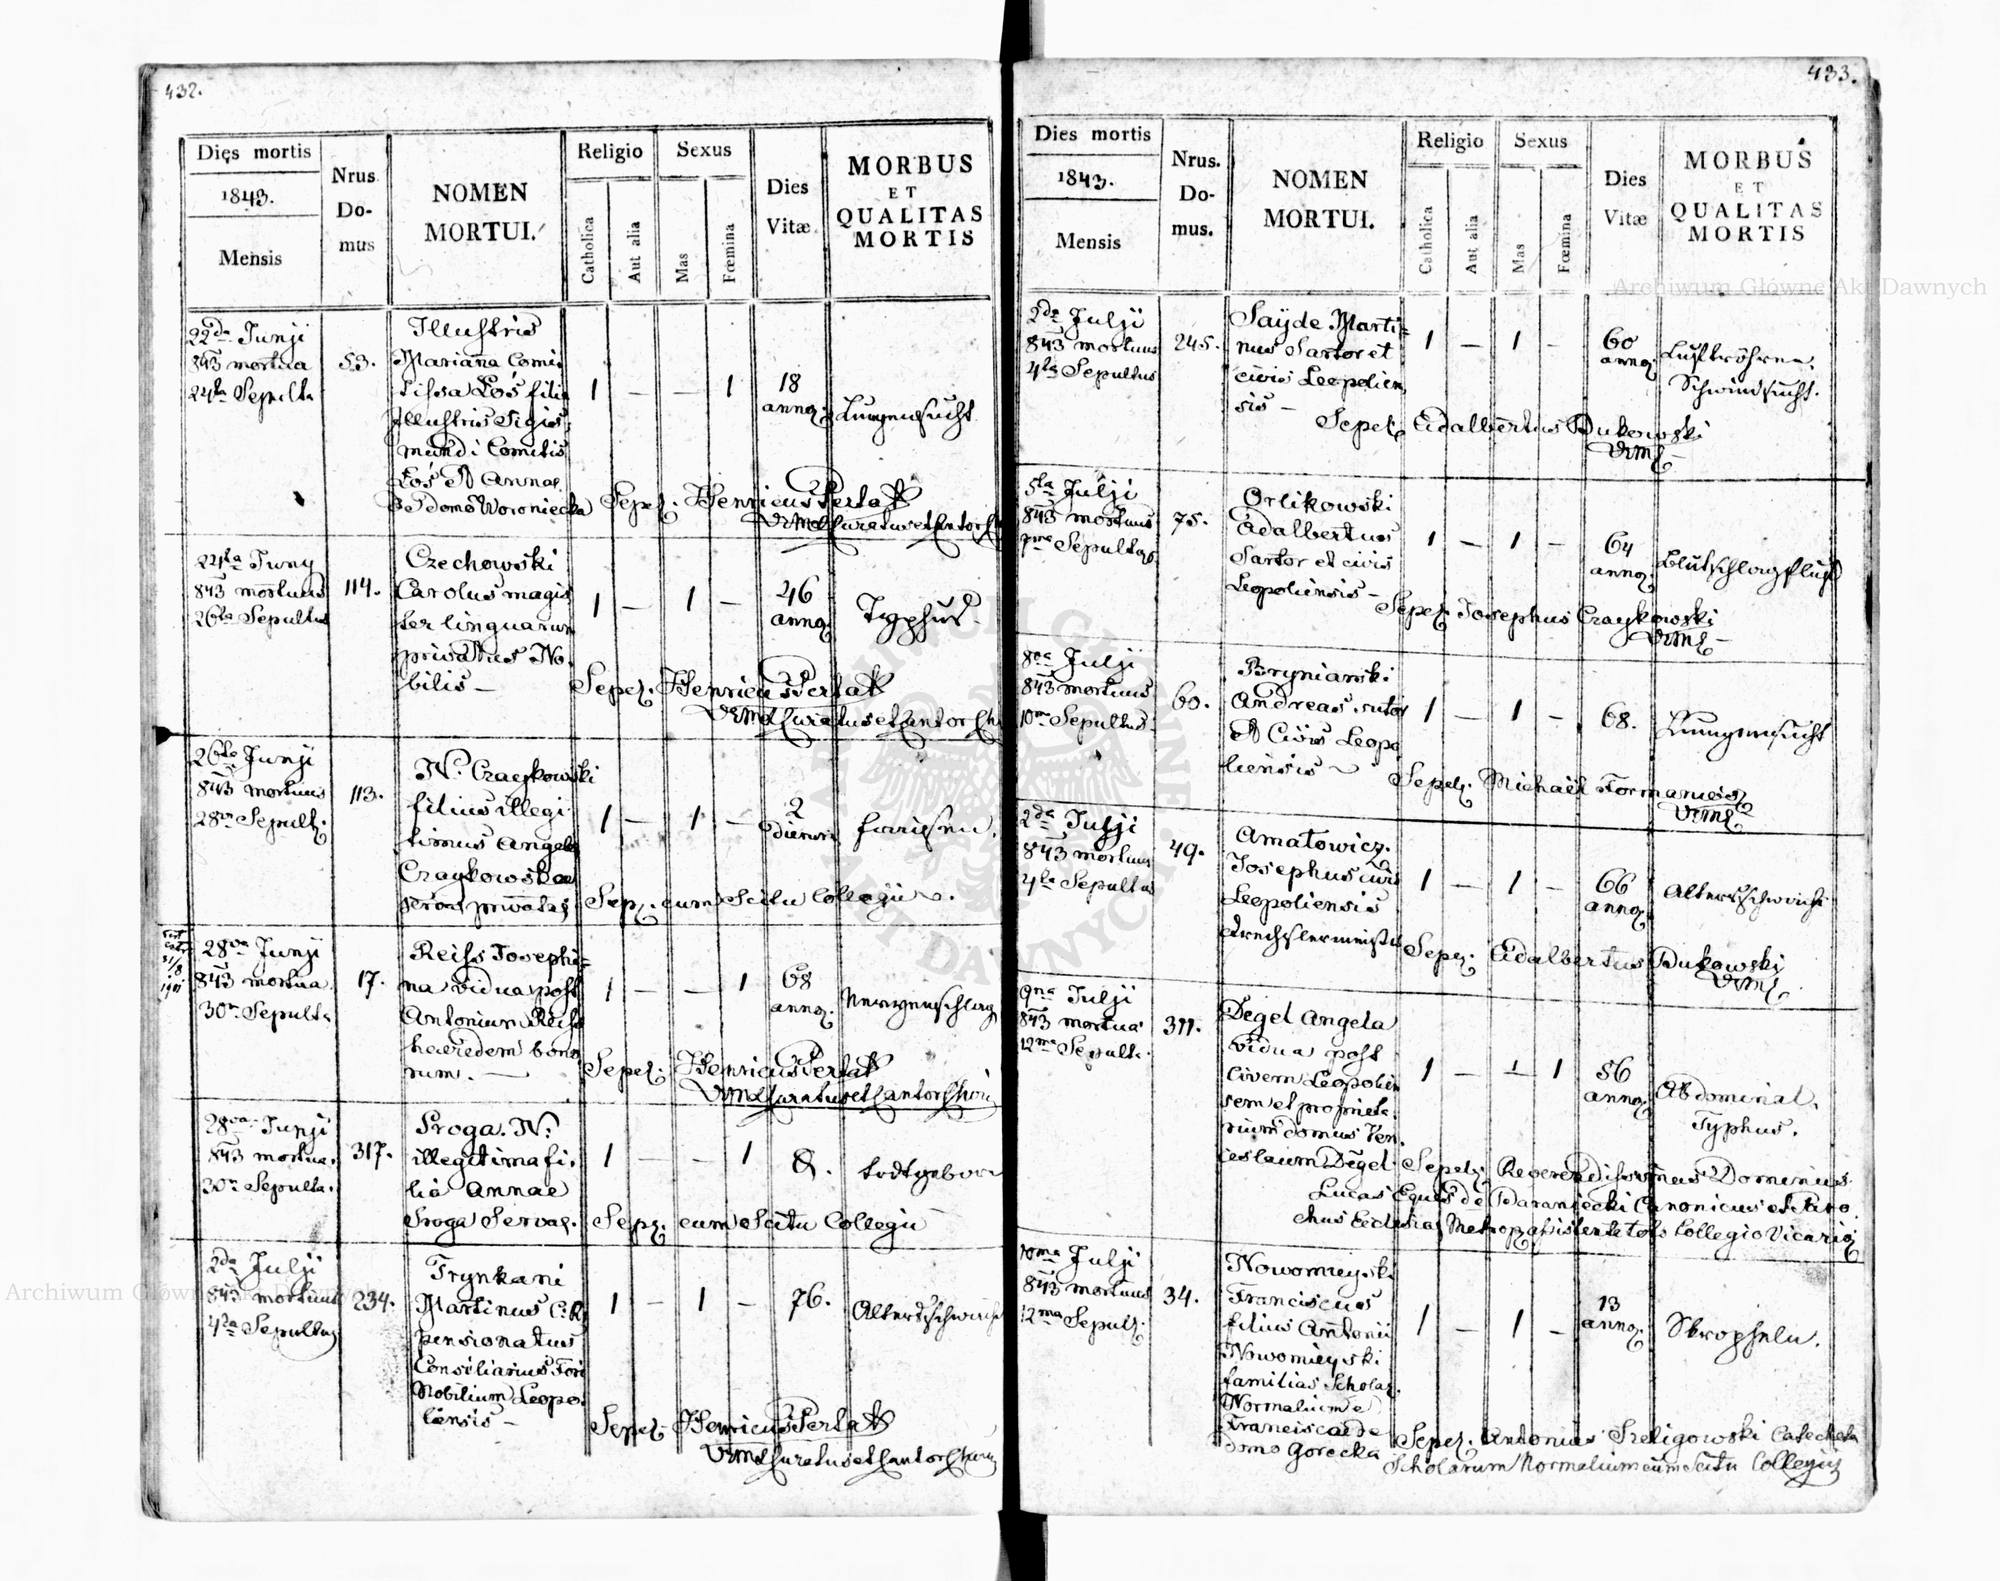 432.
Dies mortis
1843.
Mensis
Nrus
Do-
mus
NOMEN
MORTUI.
Religio
Catholica
Aut alia
Sexus
Mas
Fœmina
Dies
Vitæ
MORBUS
ET
QUALITAS
MORTIS
22da Junji
843 mortua
24ta Sepulta
53.
Illustris
Mariana Comi
tissa Łoś filia
Illustris Sigis
mundi Comitis
Łoś et Annae
de domo Woroniecka
1 — — 1
18
annor.
Lungensucht
Sepel. Henricus Perl
VrML Curatus et Cantor
24ta Juny
843 mortuus
26ta Sepultus
114.
Czechowski
Carolus magis
ter linguarum
privatus No
bilis —
1 — 1 —
46
annor.
Typhus
Sepel. Henricus Perl
VrML Curatus et Cantor
26ta Junji
843 mortuus
28va Sepult.
113.
N. Czaykowski
filius illegi
timus Angela
Czaykowska
1 — 1 —
2
dierum
Fraisen.
Sepel. cum Scitu Collegii
28va Junji
843 mortua
30ma Sepulta
17.
Reiss Josephi=
na vidua post
Antonium Reiss
haeredem bono
rum. —
1 — — 1
68
annor.
Nervenschlag
Sepel. Henricus Perl
VrML Curatus et Cantor
28va Junji
843 mortua.
30ma Sepulta.
317.
Sroga. N:
illegitima fi.
lia Annae
Sroga Servae.
1 — — 1
todtgeboren
Sepel. cum Scitu Collegii
2da Julji
843 mortuus
4ta Sepultus
234.
Trynkani
Martinus C:R
pensionatus
Consiliarius Fori
Nobilium Leopo.
liensis —
1 — 1 —
76.
Altersschwäche
Sepel. Henricus Perl
VrML Curatus et Cantor
433.
Dies mortis
1843.
Mensis
Nrus.
Do-
mus.
NOMEN
MORTUI.
Religio
Catholica
Aut alia
Sexus
Mas
Fœmina
Dies
Vitæ
MORBUS
ET
QUALITAS
MORTIS
2da Julji
843 mortuus
4ta Sepultus
245.
Sayde Marti=
nus Sartor et
civis Leopolien
sis —
1 — 1 —
60
annor.
Luftröhren
Schwindsucht.
Sepel. Adalbertus Bukowski
VrML
5ta Julji
843 mortuus
7ma Sepultus
75.
Orlikowski
Adalbertus
Sartor et civis
Leopoliensis —
1 — 1 —
64
annor.
Blutschlagfluß
Sepel. Josephus Czaykowski
VrML —
8va Julji
843 mortuus
10ma Sepultus
60.
Brynianski
Andreas sutor
et Civis Leopo
liensis —
1 — 1 —
68.
Lungensucht
Sepel. Michaël Formaniosz
VrML
2da Julji
843 mortuus
4ta Sepultus
49.
Amatowicz.
Josephus civis
Leopoliensis
Drechslermeister
1 — 1 —
66
annor.
Altersschwäche
Sepel. Adalbertus Bukowski
VrML
9na Julji
843 mortua
12ma Sepulta.
311.
Degel Angela
vidua post
Civem Leopolien
sem et proprieta.
rium domus Ven.
ceslaum Degel.
1 — 1 1
56
annor.
Abdominal.
Typhus.
Sepel. Reverendissimus Dominus
Lucas Eques de Baraniecki Canonicus et Paro.
chus Ecclesiae Metrop. assistente toto Collegio Vicarior.
10ma Julji
843 mortuus
12ma Sepult.
34.
Nowomieyski
Franciscus
filius Antonii
Nowomieyski
familias Scholar.
Normalium et
Franciscae de
domo Gorecka
1 — 1 —
13
annor.
Skropheln.
Sepel. Antonius Szeligowski Catecheta
Scholarum Normalium cum Scitu Collegii
Archiwum Główne Akt Dawnych
Archiwum Główne Akt Dawnych
ARCHIWUM GŁÓWNE AKT DAWNYCH